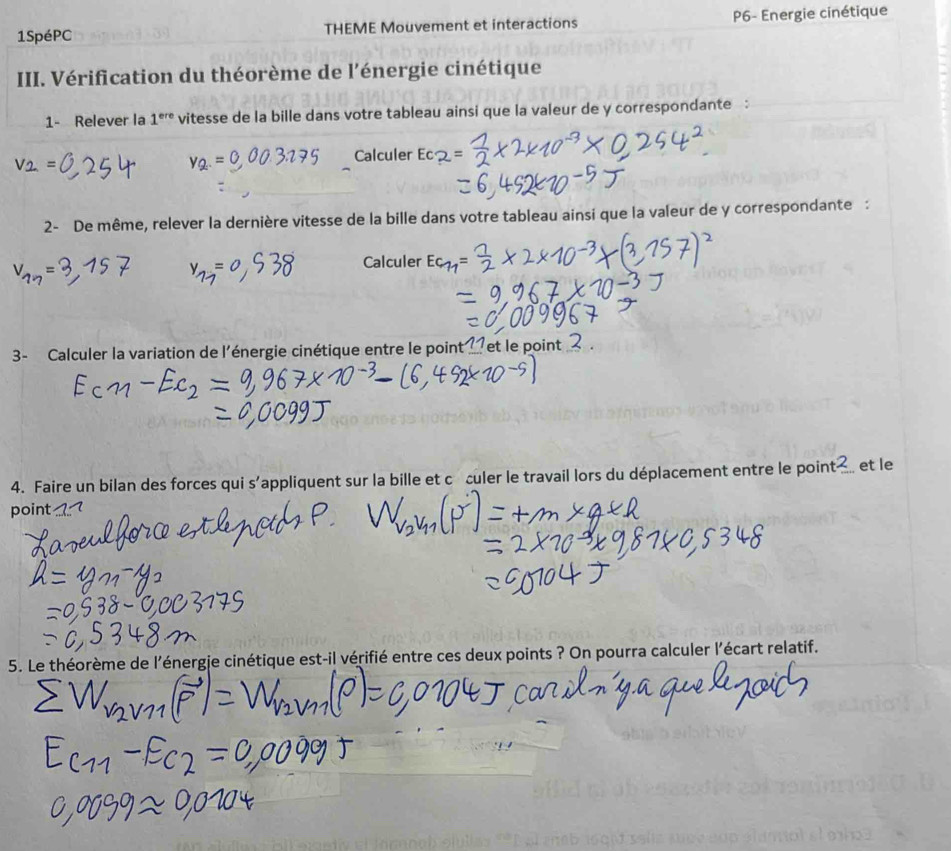 1SpéPC
THEME Mouvement et interactions
P6- Energie cinétique
III. Vérification du théorème de l'énergie cinétique
1- Relever la 1ere vitesse de la bille dans votre tableau ainsi que la valeur de y correspondante :
v2 = 0,254
y2 = 0,003175
Calculer Ec2 = 1/2 × 2×10⁻³ × 0,254²
= 6,452×10⁻⁵ J
2- De même, relever la dernière vitesse de la bille dans votre tableau ainsi que la valeur de y correspondante :
v11 = 3,157
y11 = 0,538
Calculer Ec11 = 1/2 × 2×10⁻³ × (3,157)²
= 9,967 × 10⁻³ J
= 0,009967 J
3- Calculer la variation de l'énergie cinétique entre le point 11 et le point 2.
Ec11 - Ec2 = 9,967×10⁻³ - (6,452×10⁻⁵)
= 0,0099 J
4. Faire un bilan des forces qui s'appliquent sur la bille et c culer le travail lors du déplacement entre le point 2 et le
point 11
La seul force est le poids P. Wv2v11(P) = +m×g×h
= 2×10⁻³×9,81×0,5348
= 0,0104 J
h = y11 - y2
= 0,538 - 0,003175
= 0,5348 m
5. Le théorème de l'énergie cinétique est-il vérifié entre ces deux points ? On pourra calculer l'écart relatif.
ΣWv2v11(F⃗) = Wv2v11(P) = 0,0104 J, car il n'y a que le poids
Ec11 - Ec2 = 0,0099 J
0,0099 ≈ 0,0104